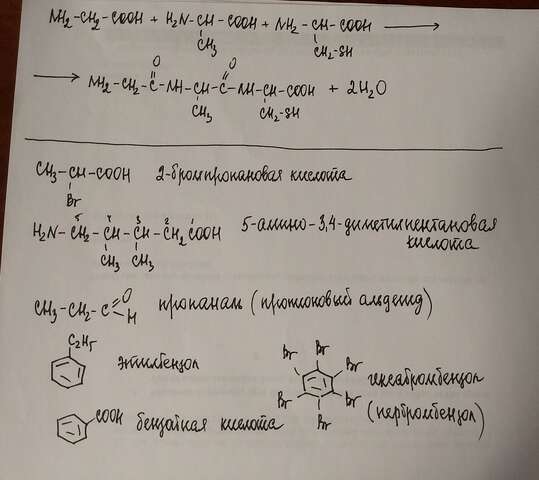 NH2-CH2-COOH + H2N-CH-COOH + NH2-CH-COOH →
CH3 CH2-SH
O O
→ NH2-CH2-C-NH-CH-C-NH-CH-COOH + 2H2O
CH3 CH2-SH
CH3-CH-COOH 2-бромпропановая кислота
Br
5 4 3 2 1
H2N-CH2-CH-CH-CH2COOH 5-амино-3,4-диметилпентановая
CH3 CH3 кислота
O
CH3-CH2-C H пропаналь (пропионовый альдегид)
C2H5
этилбензол
Br Br Br Br Br Br
гексабромбензол
(пербромбензол)
COOH бензойная кислота